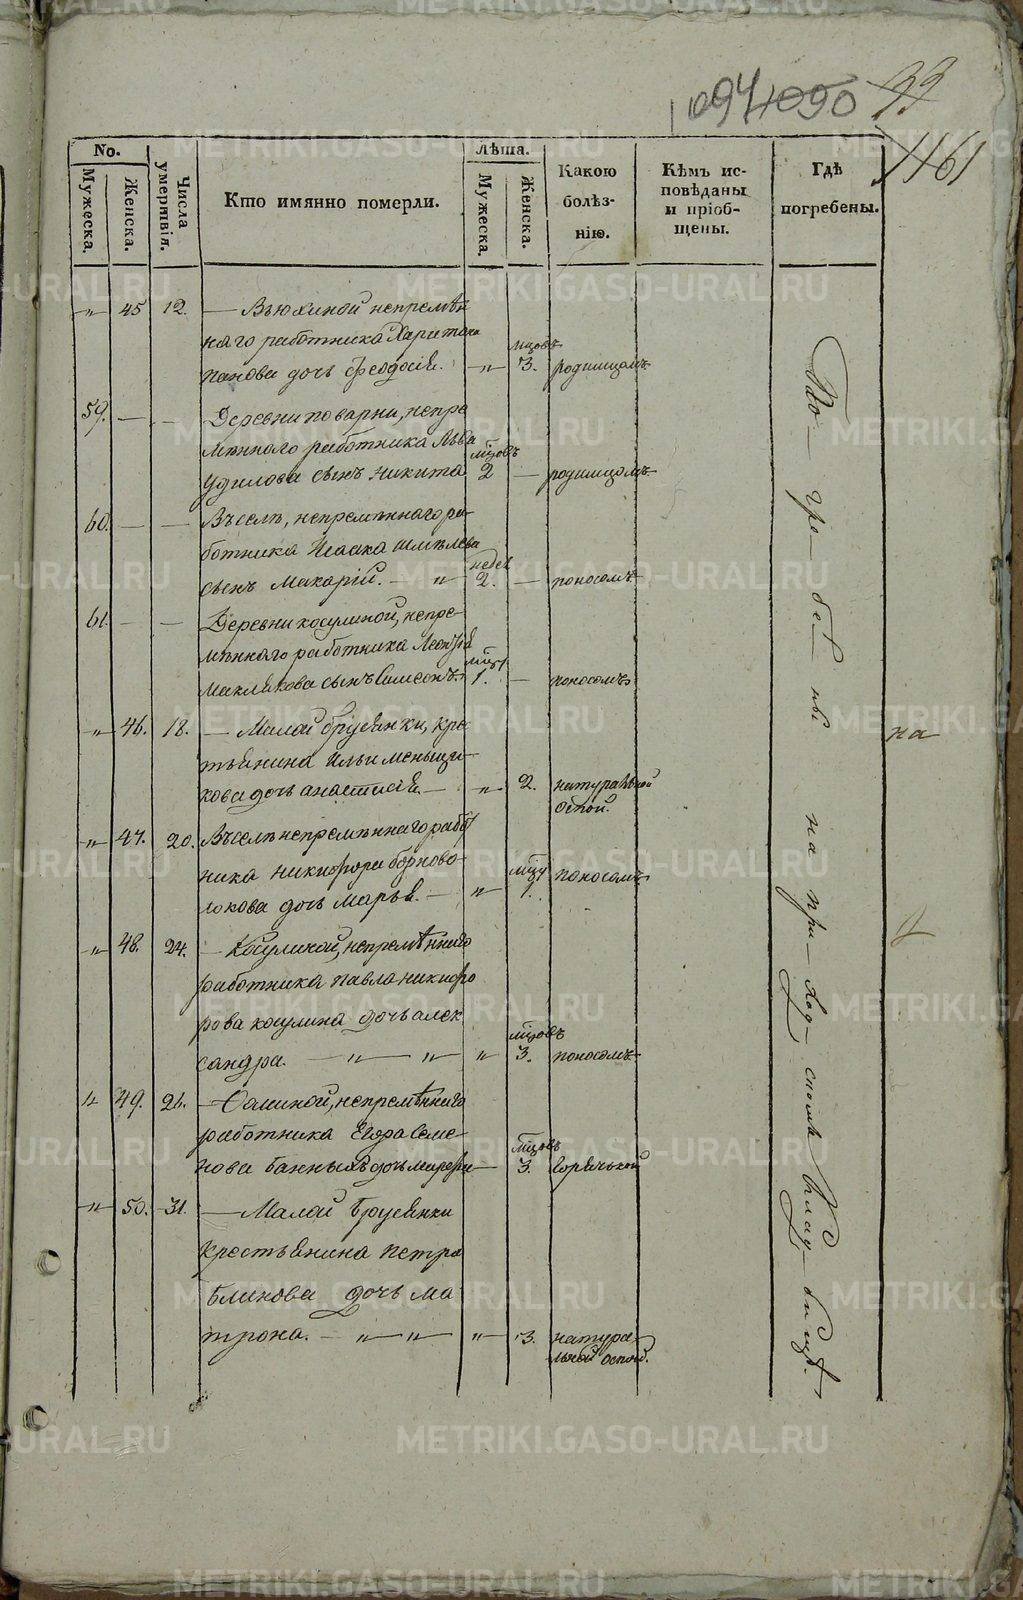 1094 1090 33
1161
No.
Мужеска.
Женска.
Числа умертвія.
Кто имянно померли.
Лѣта.
Мужеска.
Женска.
Какою болѣз-нію.
Кѣмъ ис-повѣданы и пріоб-щены.
Гдѣ погребены.
„ 45 12. — Вьюхиной непремѣн
наго работника Харитона мцовъ
Панова дочь Феодосія. — „ — 3. родимцомъ
59. — — Деревни поварни, непре
мѣннаго работника Льва мцовъ
Удилова сынъ Никита 2 — родимцомъ
60. — — Въселѣ, непремѣннаго ра-
ботника Исаака Шмѣлева недел
сынъ Макарій. — „ 2. — поносомъ
61. — — Деревни косулиной, непре-
мѣннаго работника Леонтія мцъ
Маклакова сынъ Симеонъ 1. — поносомъ
„ 46. 18. — Малой брусянки, кре
стьянина Ильи меньщи-
кова дочь анастасія. — „ 2. натуральной
оспой.
„ 47. 20. Въселѣ непремѣннаго работ
ника никифора черново- мцъ
локова дочь Марья. — „ 1. поносомъ
„ 48. 24. — Косулиной, непремѣннаго
работника павла никифо
рова косулина дочь алек мцовъ
сандра. — „ — „ „ 3. поносомъ
„ 49. 26. — Фоминой, непремѣннаго
работника Егора Семе- мцовъ
нова банныхъ дочь марфа — 3. горячькой
„ 50. 31. — Малой Брусянки
крестьянина петра
блинова дочь ма
трона. — „ — „ „ 3. натура-
льной оспой.
По-гре-бе-ны на при-ход-скомъ Клад-бищѣ.
на